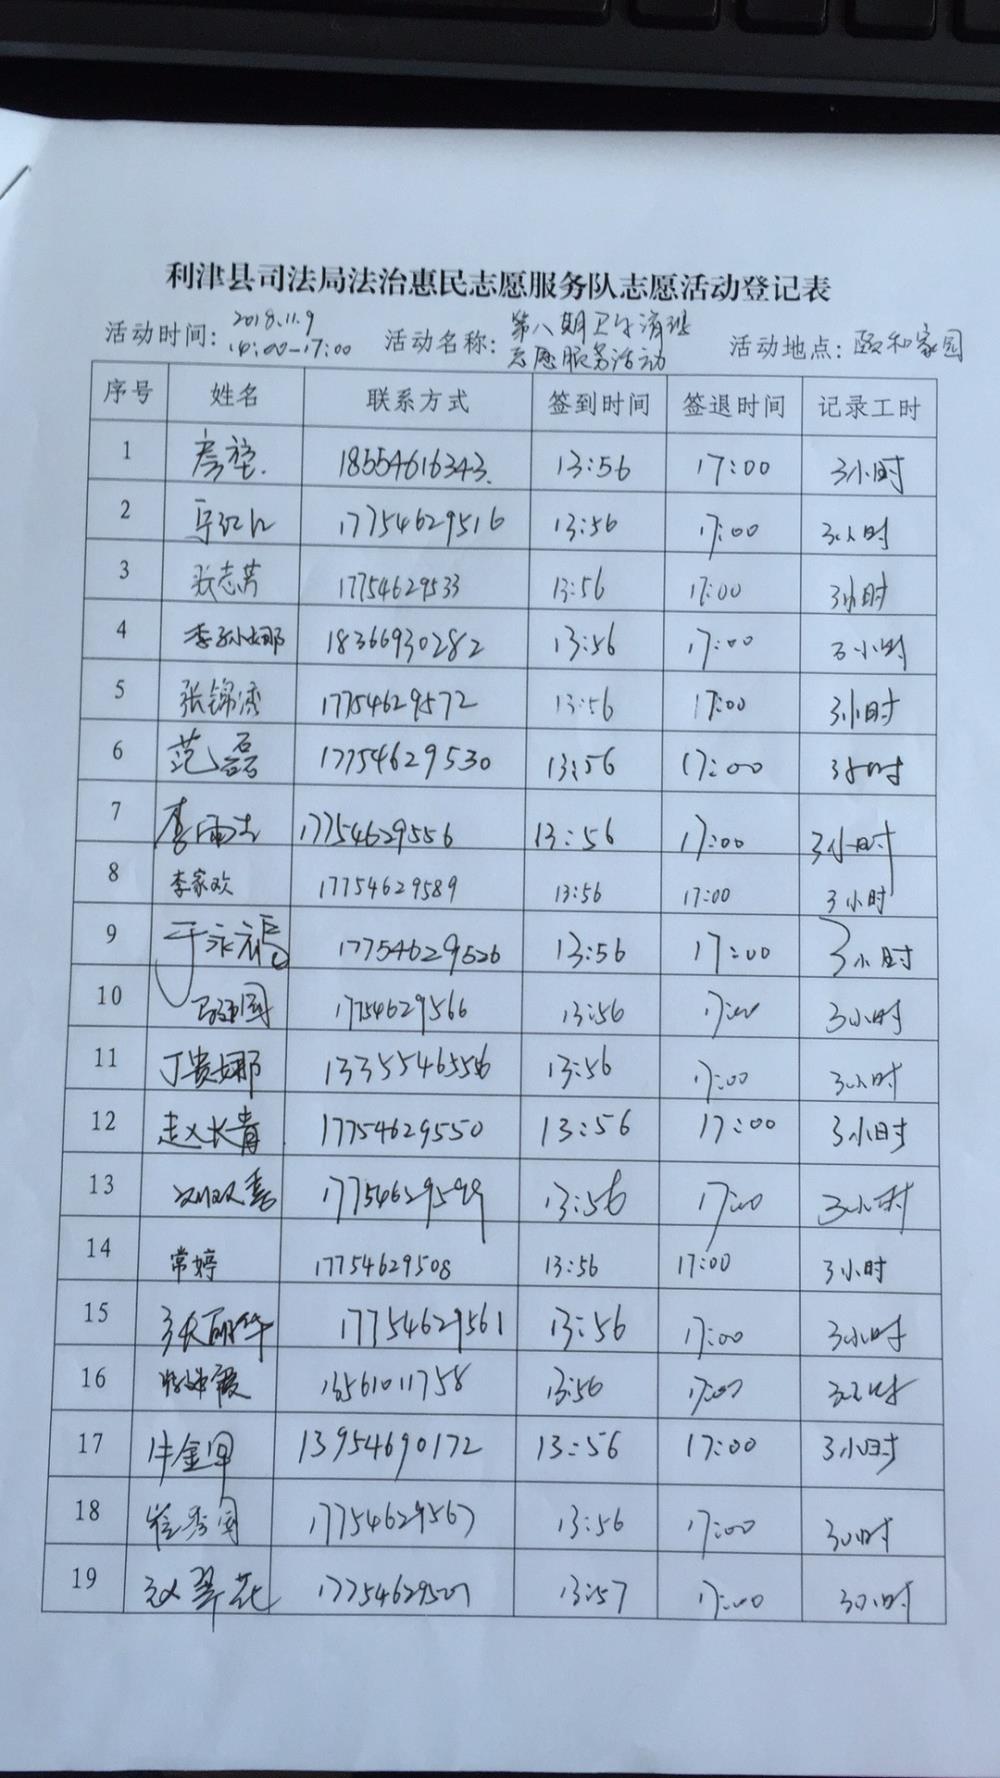 利津县司法局法治惠民志愿服务队志愿活动登记表
活动时间：2018.11.9 14:00-17:00 活动名称：第八期卫生清洁志愿服务活动 活动地点：颐和家园
序号 姓名 联系方式 签到时间 签退时间 记录工时
1 18554616343. 13:56 17:00 3小时
2 17754629516 13:56 17:00 3小时
3 张志芳 17754629533 13:56 17:00 3小时
4 李孙娜 18366930282 13:56 17:00 3小时
5 张锦涛 17754629572 13:56 17:00 3小时
6 范磊 17754629530 13:56 17:00 3小时
7 17754629556 13:56 17:00 3小时
8 李家欢 17754629589 13:56 17:00 3小时
9 于永福 17754629526 13:56 17:00 3小时
10 17754629566 13:56 17:00 3小时
11 丁贵娜 13355546556 13:56 17:00 3小时
12 赵长青 17754629550 13:56 17:00 3小时
13 17754629599 13:56 17:00 3小时
14 常婷 17754629508 13:56 17:00 3小时
15 张丽华 17754629561 13:56 17:00 3小时
16 13561011758 13:56 17:00 3小时
17 13954690172 13:56 17:00 3小时
18 崔秀国 17754629567 13:56 17:00 3小时
19 赵翠花 13:57 17:00 3小时